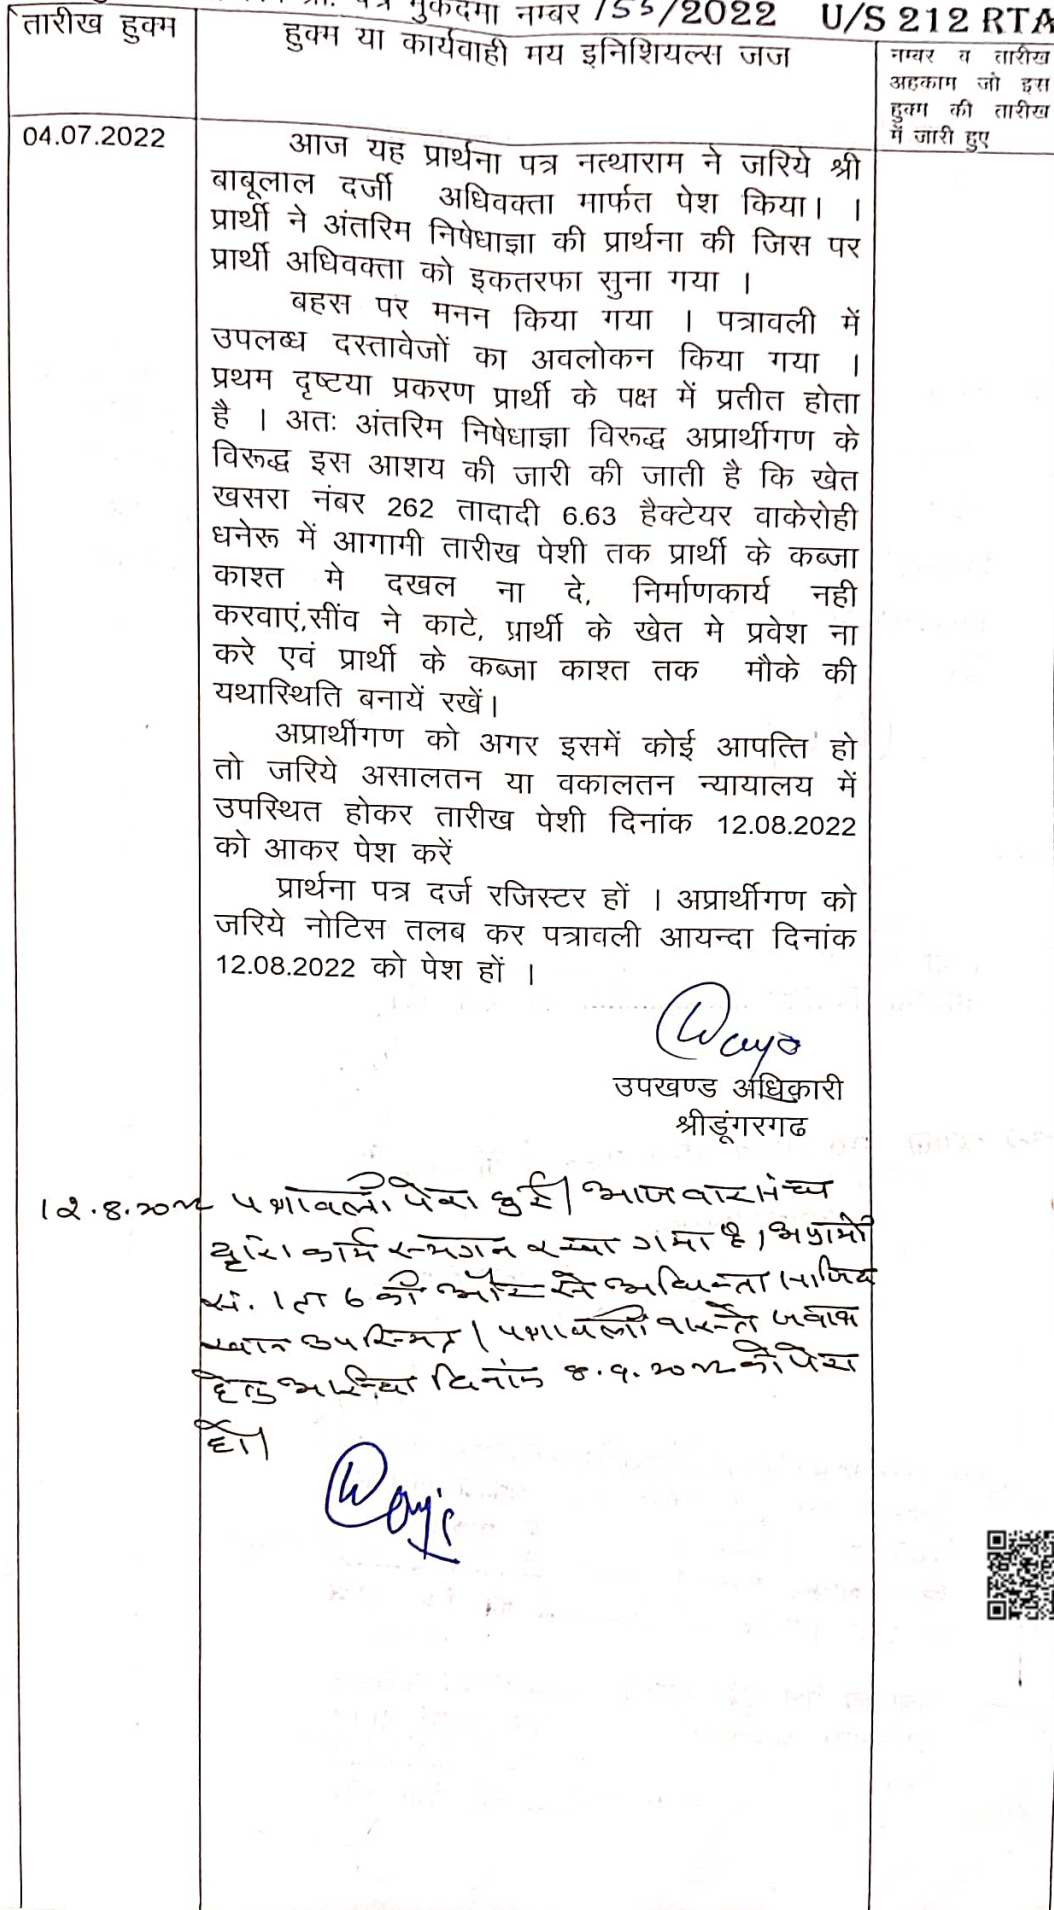 प्रा. पत्र मुकदमा नम्बर 155/2022 U/S 212 RTA
तारीख हुक्म
हुक्म या कार्यवाही मय इनिशियल्स जज
नम्बर व तारीख
अहकाम जो इस
हुक्म की तारीख
में जारी हुए
04.07.2022
आज यह प्रार्थना पत्र नत्थाराम ने जरिये श्री
बाबूलाल दर्जी अधिवक्ता मार्फत पेश किया। ।
प्रार्थी ने अंतरिम निषेधाज्ञा की प्रार्थना की जिस पर
प्रार्थी अधिवक्ता को इकतरफा सुना गया ।
बहस पर मनन किया गया । पत्रावली में
उपलब्ध दस्तावेजों का अवलोकन किया गया ।
प्रथम दृष्टया प्रकरण प्रार्थी के पक्ष में प्रतीत होता
है । अतः अंतरिम निषेधाज्ञा विरूद्ध अप्रार्थीगण के
विरूद्ध इस आशय की जारी की जाती है कि खेत
खसरा नंबर 262 तादादी 6.63 हैक्टेयर वाकेरोही
धनेरू में आगामी तारीख पेशी तक प्रार्थी के कब्जा
काश्त मे दखल ना दे, निर्माणकार्य नही
करवाएं,सींव ने काटे, प्रार्थी के खेत मे प्रवेश ना
करे एवं प्रार्थी के कब्जा काश्त तक मौके की
यथास्थिति बनायें रखें।
अप्रार्थीगण को अगर इसमें कोई आपत्ति हो
तो जरिये असालतन या वकालतन न्यायालय में
उपस्थित होकर तारीख पेशी दिनांक 12.08.2022
को आकर पेश करें
प्रार्थना पत्र दर्ज रजिस्टर हों । अप्रार्थीगण को
जरिये नोटिस तलब कर पत्रावली आयन्दा दिनांक
12.08.2022 को पेश हों ।
उपखण्ड अधिकारी
श्रीडूंगरगढ
12.8.2022 पत्रावली पेश हुई। आज बार संघ
द्वारा कार्य स्थगन रखा गया है, अप्रार्थी
सं. 1 ता 6 की ओर से अधिवक्ता
खान उपस्थित। पत्रावली वास्ते जवाब
हेतु आईन्दा दिनांक 8.9.2022 को पेश
हो।